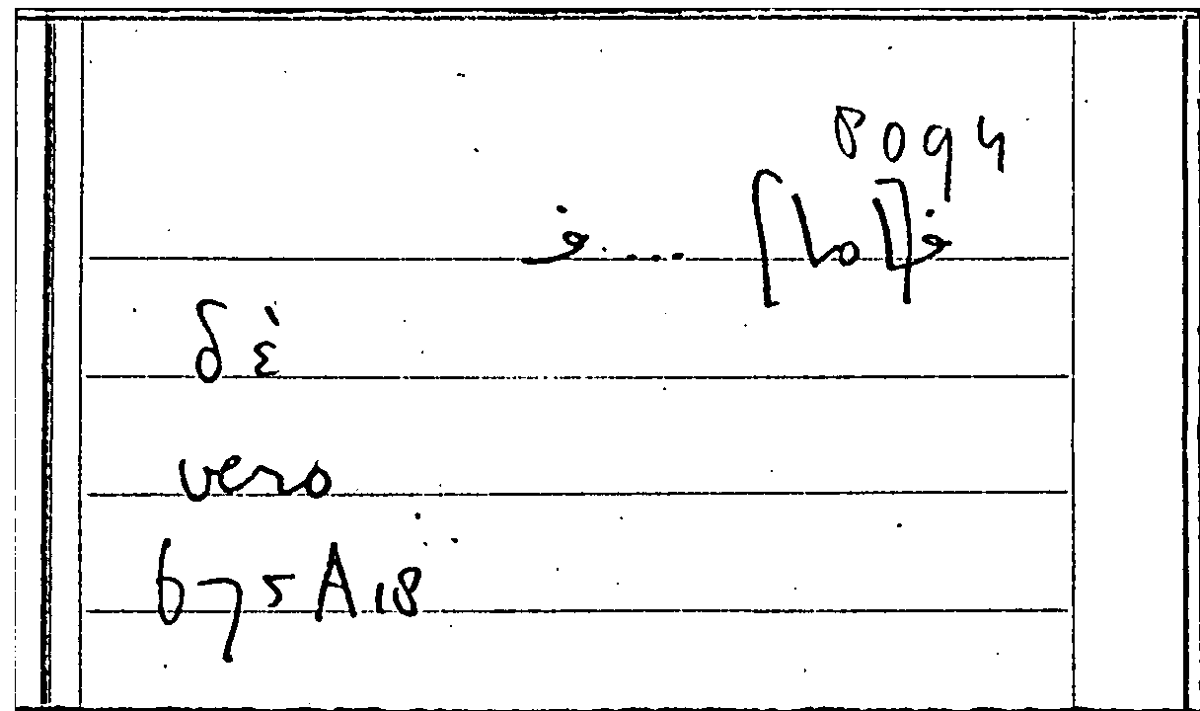 8094
ف[اما] ... ف
δὲ
vero
675 A 18